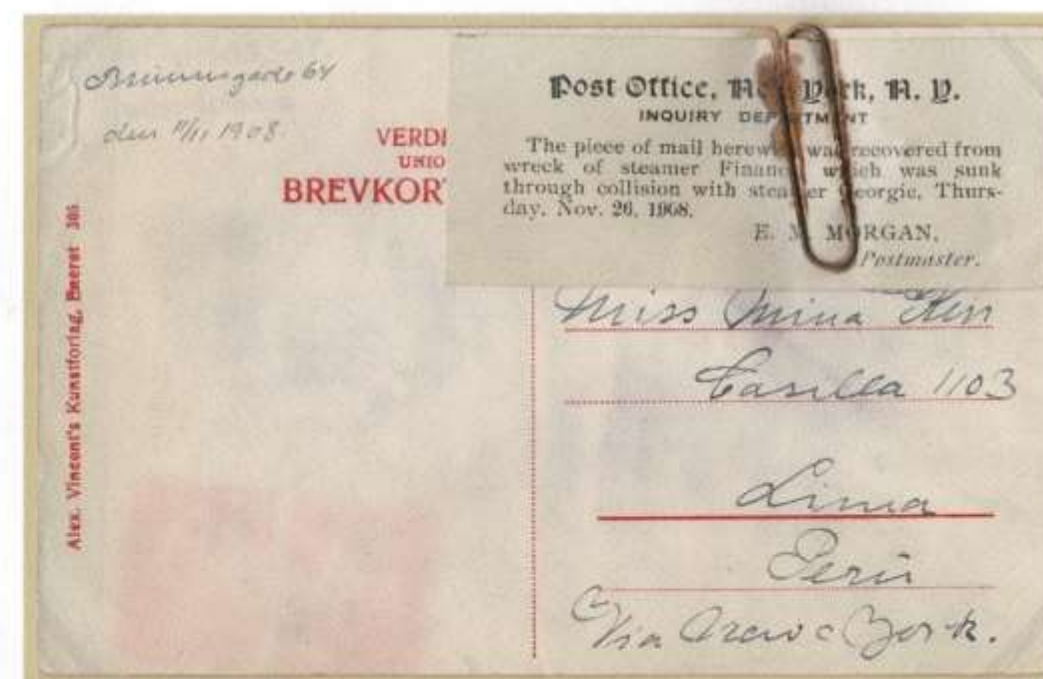 64
den 11/11 1908.
VERD
UNIO
BREVKOR
Alex. Vincent's Kunstforlag, Eneret 305
Post Office, New York, N. Y.
INQUIRY DEPARTMENT
The piece of mail herewith was recovered from
wreck of steamer Finance which was sunk
through collision with steamer Georgic, Thurs-
day, Nov. 26, 1908.
E. M. MORGAN,
Postmaster.
Miss Mina
Casilla 1103
Lima
Perú
Via New York.